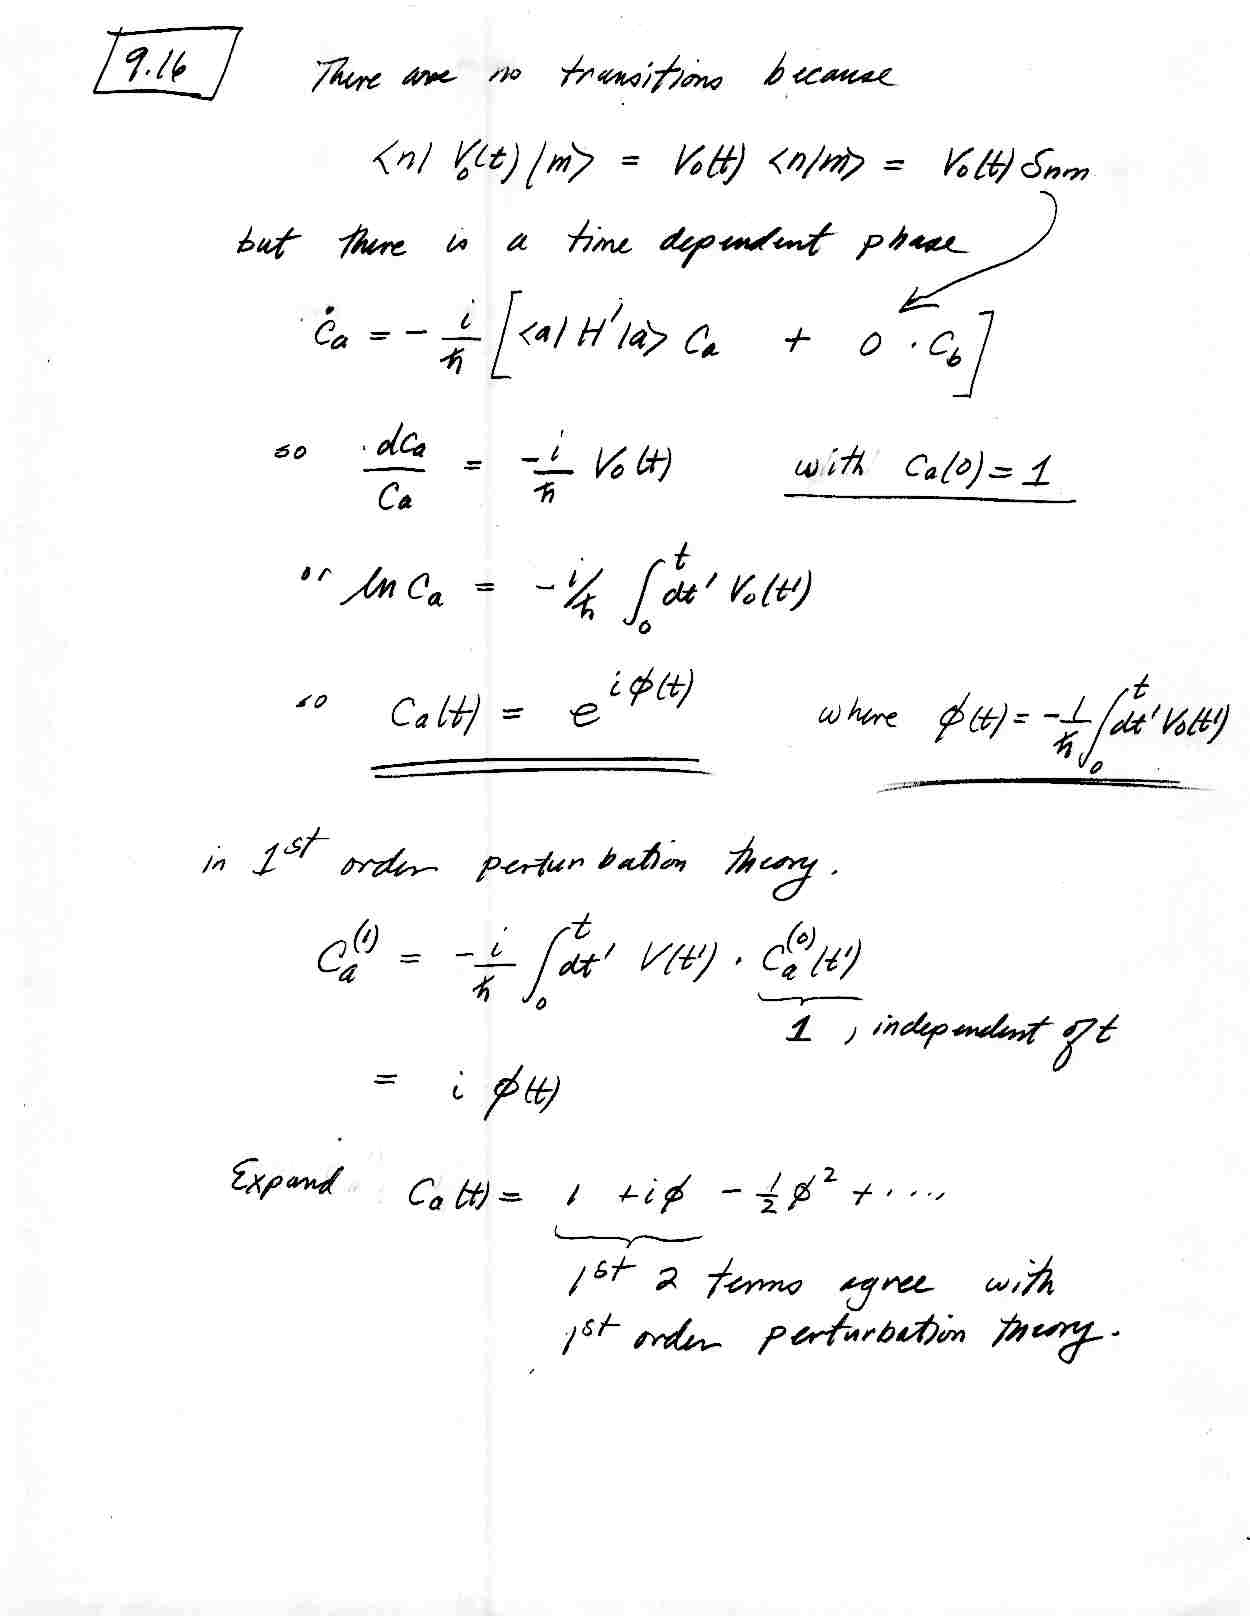 9.16 There are no transitions because
<n| V₀(t) |m> = V₀(t) <n|m> = V₀(t) δnm
but there is a time dependent phase
ċa = - i/ħ [<a| H' |a> Ca + 0 · Cb]
so dCa/Ca = -i/ħ V₀(t) with Ca(0) = 1
or ln Ca = -i/ħ ∫₀ᵗ dt' V₀(t')
so Ca(t) = e^{iϕ(t)} where ϕ(t) = -1/ħ ∫₀ᵗ dt' V₀(t')
in 1st order perturbation theory.
Ca^(1) = -i/ħ ∫₀ᵗ dt' V(t') · Ca^(0)(t')
1, independent of t
= i ϕ(t)
Expand Ca(t) = 1 + iϕ - ½ϕ² + ....
1st 2 terms agree with
1st order perturbation theory.